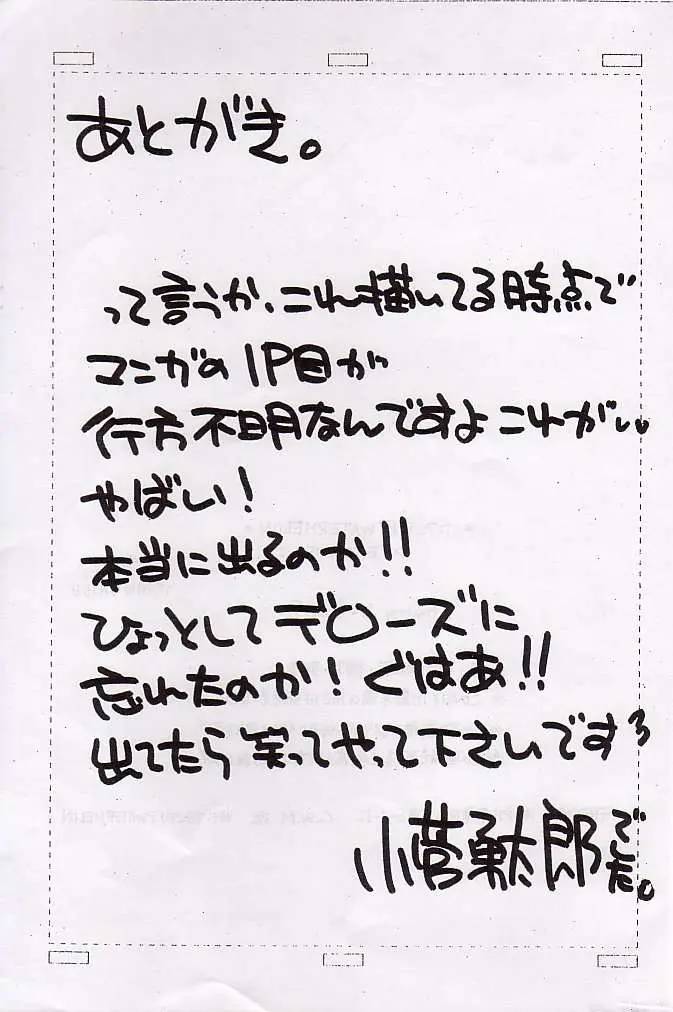 あとがき。
って言うか、これ描いてる時点で
マンガの1P目が
行方不明なんですよこれがい。
やばい!
本当に出るのか!!
ひょっとしてデ〇ーズに
忘れたのか!ぐはあ!!
出てたら笑ってやって下さいですろ
小菅勇太郎でした。